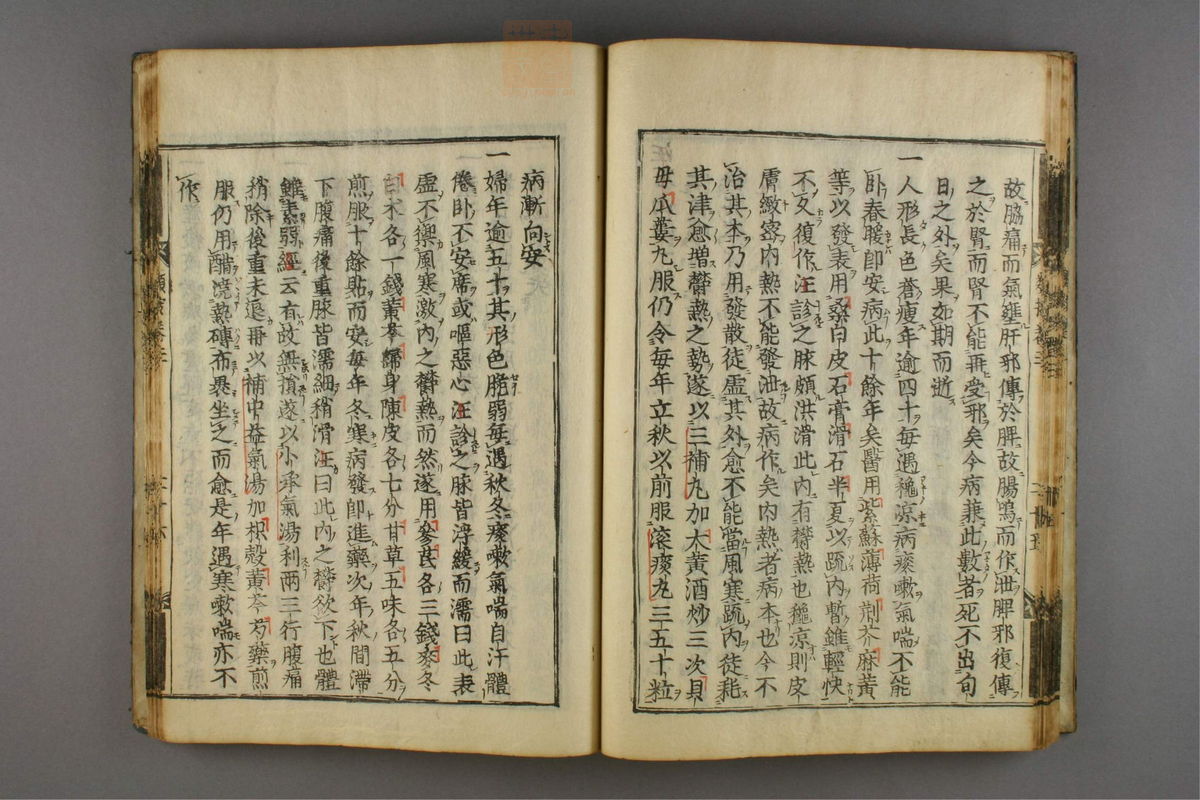 故脇痛而氣壅肝邪傳於脾故腸鳴而作泄脾邪復傳
之於腎而腎不能再受邪矣今病兼此數者死不出旬
日之外矣果如期而逝
一人形長色蒼瘦年逾四十每遇秋涼病痰嗽氣喘不能
卧春暖即安病此十餘年矣醫用紫蘇薄荷荊芥麻黄
等以發表用桑白皮石膏滑石半夏以踈内暫雖輕快
不久復作汪診之脉頗洪滑此内有欝熱也秋凉則皮
膚緻密内熱不能發泄故病作矣内熱者病本也今不
治其本乃用發散徒虚其外愈不能當風寒踈内徒耗
其津愈增欝熱之勢遂以三補丸加大黄酒炒三次貝
母瓜蔞丸服仍令每年立秋以前服滚痰丸三五十粒
病漸向安
一婦年逾五十其形色脆弱每遇秋冬痰嗽氣喘自汗體
倦卧不安席或嘔惡心汪診之脉皆浮緩而濡曰此表
虚不禦風寒激内之欝熱而然遂用參芪各三錢麥冬
白朮各一錢黄芩歸身陳皮各七分甘草五味各五分
煎服十餘貼而安每年冬寒病發即進藥次年秋間滯
下腹痛後重脉皆濡細稍滑汪曰此内之欝欲下也體
雖素弱經云有故無損遂以小承氣湯利兩三行腹痛
稍除後重未退再以補中益氣湯加枳殼黄芩芍藥煎
服仍用醋澆熱磚布裹坐之而愈是年遇寒嗽喘亦不
作